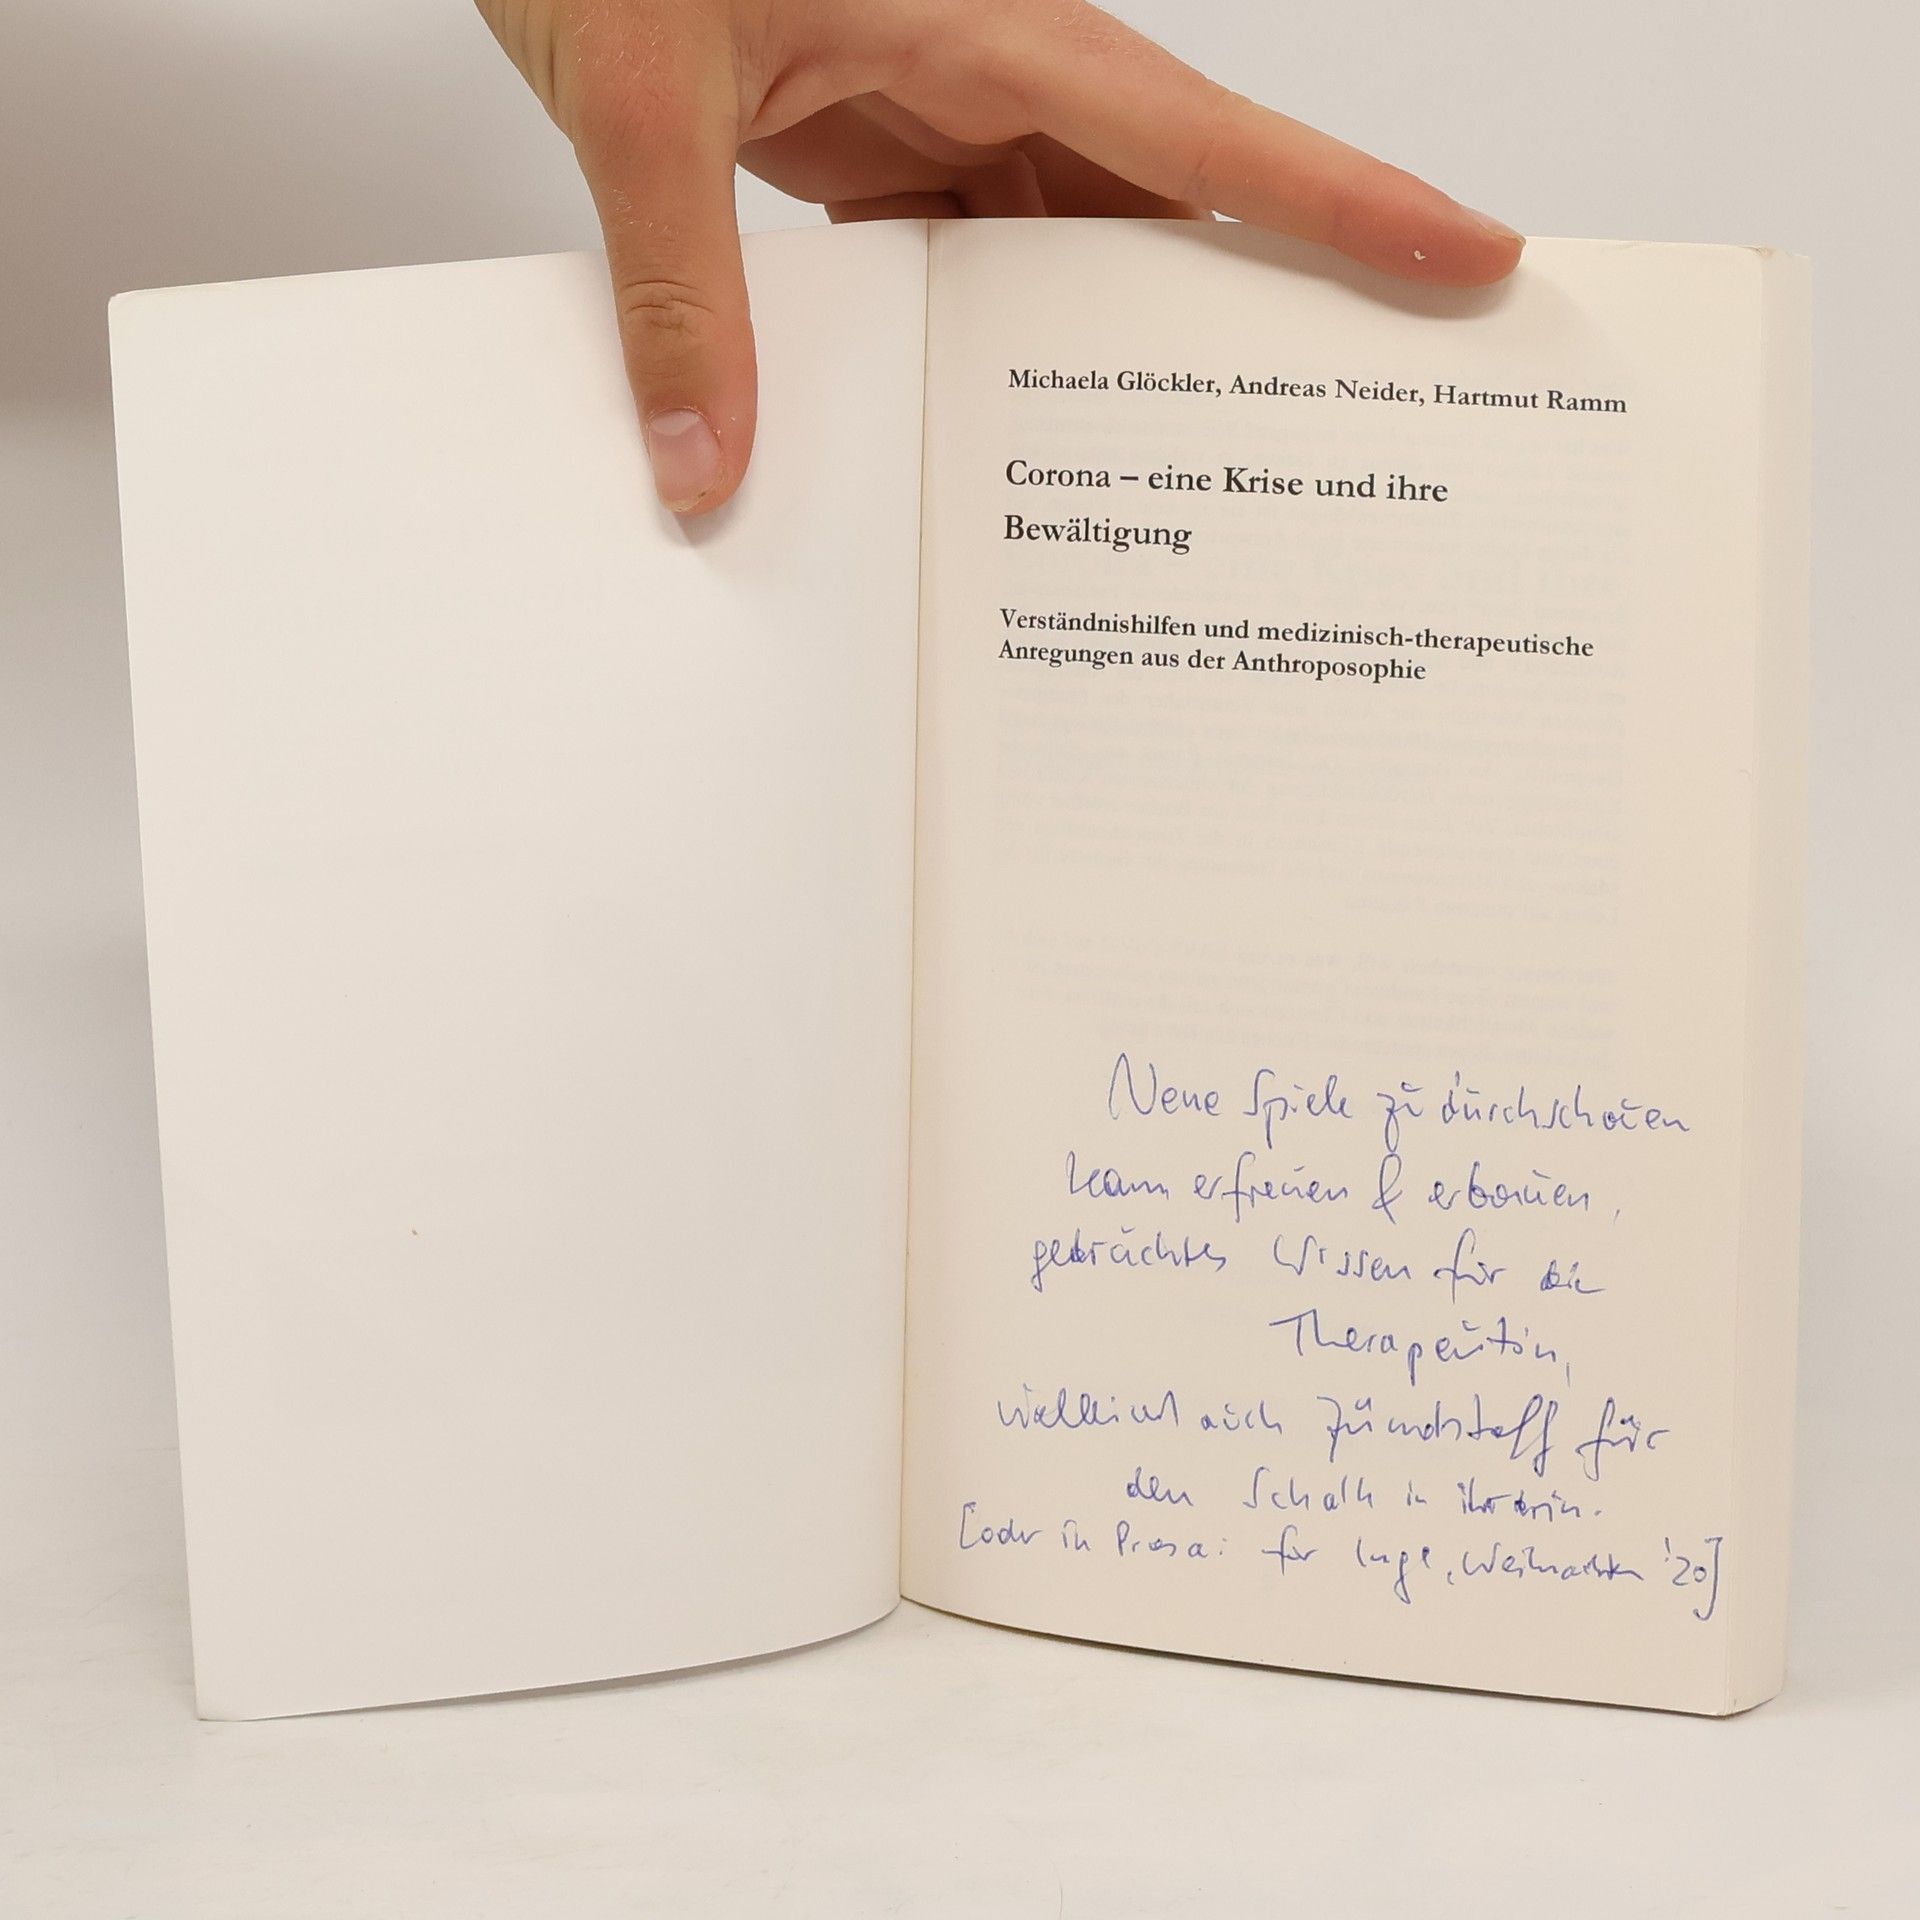 Michaela Glöckler, Andreas Neider, Hartmut Ramm
Corona – eine Krise und ihre
Bewältigung
Verständnishilfen und medizinisch-therapeutische
Anregungen aus der Anthroposophie
Neue Spiele zu durchschauen
kann erfreuen & erbauen,
Wissen für die
Therapeutin,
vielleicht auch Zündstoff für
den Schalk in ihr drin.
[oder in Prosa: für Inge, Weihnachten '20]